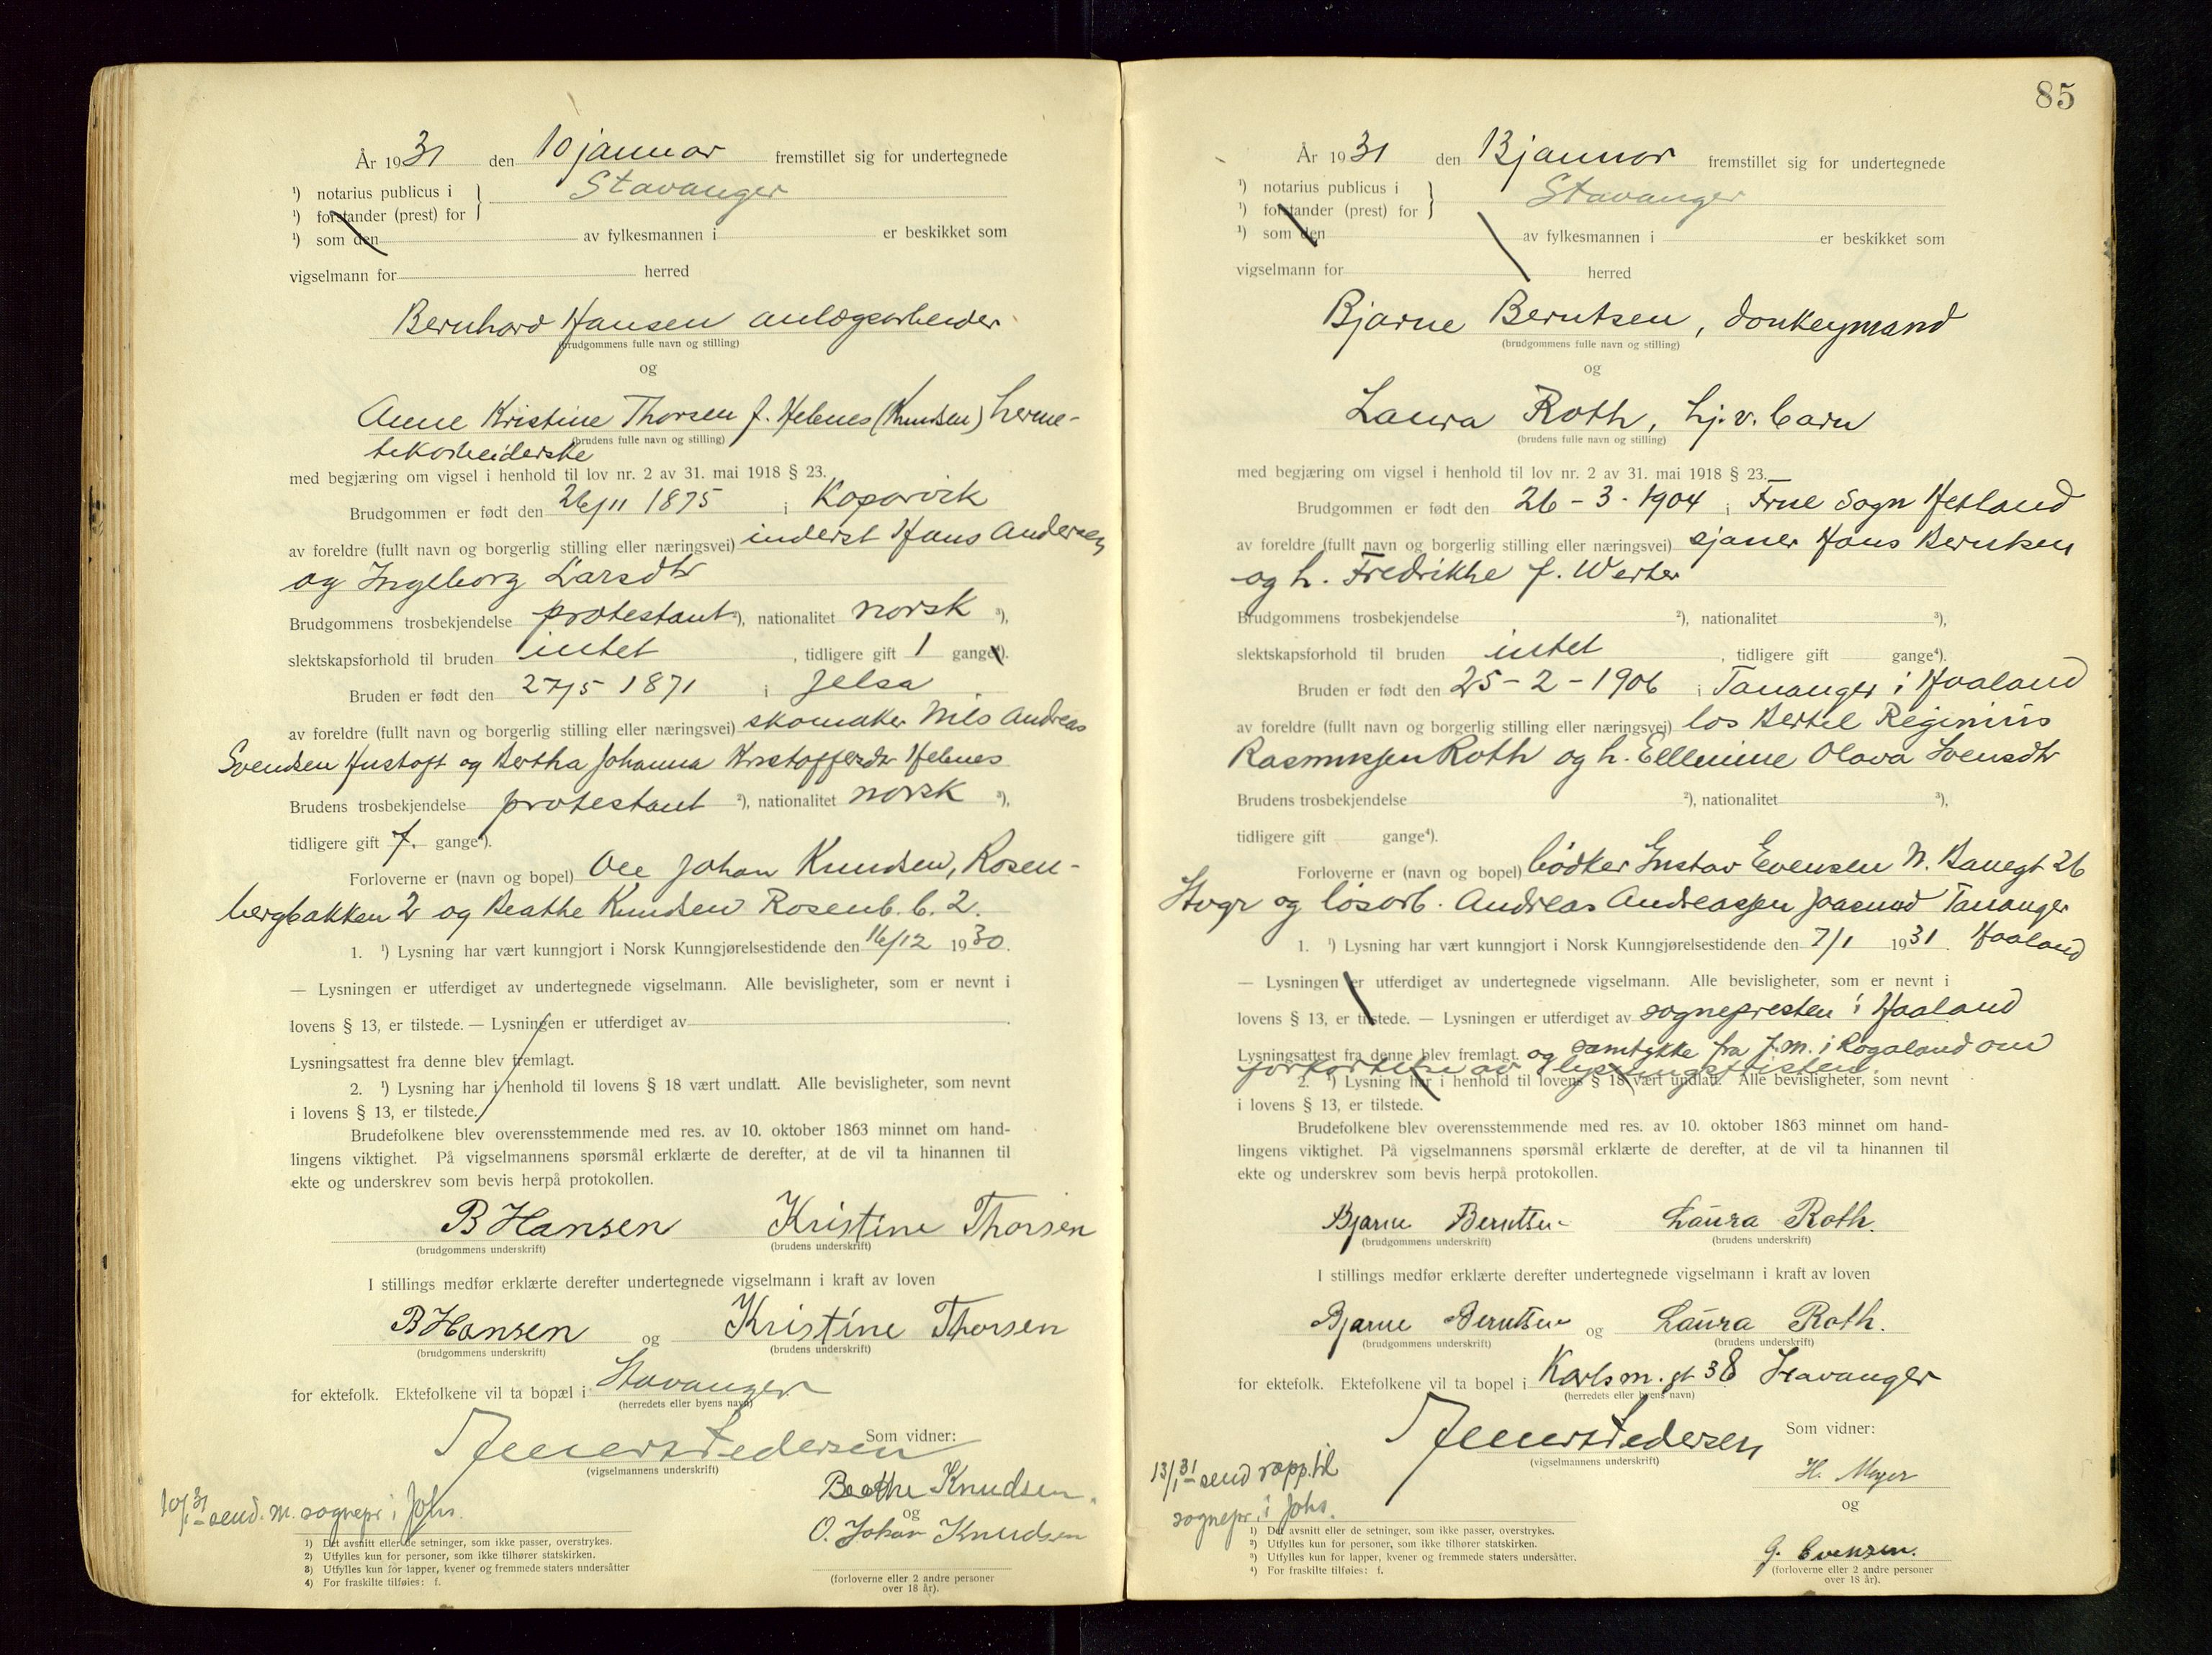 År 1931 den 10 januar fremstillet sig for undertegnede
¹) notarius publicus i } Stavanger
¹) forstander (prest) for
¹) som den av fylkesmannen i er beskikket som
vigselmann for herred
Bernhard Hansen anlægsarbeider
(brudgommens fulle navn og stilling)
og
Anne Kristine Thorsen f. Helenes (Knudsen) herme-
(brudens fulle navn og stilling)
tikarbeiderske
med begjæring om vigsel i henhold til lov nr. 2 av 31. mai 1918 § 23.
Brudgommen er født den 26/11 1875 i Kopervik
av foreldre (fullt navn og borgerlig stilling eller næringsvei) inderst Hans Andersen
og Ingeborg Larsdtr
Brudgommens trosbekjendelse protestant ²), nationalitet norsk ³),
slektskapsforhold til bruden intet , tidligere gift 1 gange⁴).
Bruden er født den 27/5 1871 i Jelsa
av foreldre (fullt navn og borgerlig stilling eller næringsvei) skomaker Nils Andreas
Svendsen Hustoft og Bertha Johanna Kristoffersdtr Helenes
Brudens trosbekjendelse protestant ²), nationalitet norsk ³),
tidligere gift f. gange⁴).
Forloverne er (navn og bopel) Ole Johan Knudsen, Rosen-
bergbakken 2 og Beathe Knudsen Rosenb. b. 2.
1. ¹) Lysning har vært kunngjort i Norsk Kunngjørelsestidende den 16/12 1930.
— Lysningen er utferdiget av undertegnede vigselmann. Alle bevisligheter, som er nevnt i
lovens § 13, er tilstede. — Lysningen er utferdiget av
Lysningsattest fra denne blev fremlagt.
2. ¹) Lysning har i henhold til lovens § 18 vært undlatt. Alle bevisligheter, som nevnt
i lovens § 13, er tilstede.
Brudefolkene blev overensstemmende med res. av 10. oktober 1863 minnet om hand-
lingens viktighet. På vigselmannens spørsmål erklærte de derefter, at de vil ta hinannen til
ekte og underskrev som bevis herpå protokollen.
B Hansen Kristine Thorsen
(brudgommens underskrift) (brudens underskrift)
I stillings medfør erklærte derefter undertegnede vigselmann i kraft av loven
B Hansen og Kristine Thorsen
(brudgommens underskrift) (brudens underskrift)
for ektefolk. Ektefolkene vil ta bopæl i Stavanger
(herredets eller byens navn)
Som vidner:
(vigselmannens underskrift)
Beathe Knudsen.
og
O. Johan Knudsen
(forloverne eller 2 andre personer
over 18 år).
10/1 31 send. m. sognepr. i Johs.
1) Det avsnitt eller de setninger, som ikke passer, overstrykes.
2) Utfylles kun for personer, som ikke tilhører statskirken.
3) Utfylles kun for lapper, kvener og fremmede staters undersåtter
4) For fraskilte tilføies: f.
85
År 1931 den 13 januar fremstillet sig for undertegnede
¹) notarius publicus i } Stavanger
¹) forstander (prest) for
¹) som den av fylkesmannen i er beskikket som
vigselmann for herred
Bjarne Berntsen, donkeymand
(brudgommens fulle navn og stilling)
og
Laura Roth, hj. v. barn
(brudens fulle navn og stilling)
med begjæring om vigsel i henhold til lov nr. 2 av 31. mai 1918 § 23.
Brudgommen er født den 26 - 3 - 1904 i Frue Sogn Hetland
av foreldre (fullt navn og borgerlig stilling eller næringsvei) sjauer Hans Berntsen
og h. Fredrikke f. Werter
Brudgommens trosbekjendelse ²), nationalitet ³),
slektskapsforhold til bruden intet , tidligere gift gange⁴).
Bruden er født den 25 - 2 - 1906 i Tananger i Haaland
av foreldre (fullt navn og borgerlig stilling eller næringsvei) los Bertel Reginius
Rasmussen Roth og h. Ellenine Olava Svensdtr
Brudens trosbekjendelse ²), nationalitet ³),
tidligere gift gange⁴).
Forloverne er (navn og bopel) bödker Gustav Evensen N. Banegt 26
Stvgr og løsarb. Andreas Andreassen Jaasund Tananger
1. ¹) Lysning har vært kunngjort i Norsk Kunngjørelsestidende den 7/1 1931. Haaland
— Lysningen er utferdiget av undertegnede vigselmann. Alle bevisligheter, som er nevnt i
lovens § 13, er tilstede. — Lysningen er utferdiget av sognepresten i Haaland
Lysningsattest fra denne blev fremlagt. og samtykke fra f.m. i Rogaland om
forkortelse av lysningsfristen.
2. ¹) Lysning har i henhold til lovens § 18 vært undlatt. Alle bevisligheter, som nevnt
i lovens § 13, er tilstede.
Brudefolkene blev overensstemmende med res. av 10. oktober 1863 minnet om hand-
lingens viktighet. På vigselmannens spørsmål erklærte de derefter, at de vil ta hinannen til
ekte og underskrev som bevis herpå protokollen.
Bjarne Berntsen Laura Roth.
(brudgommens underskrift) (brudens underskrift)
I stillings medfør erklærte derefter undertegnede vigselmann i kraft av loven
Bjarne Berntsen og Laura Roth.
(brudgommens underskrift) (brudens underskrift)
for ektefolk. Ektefolkene vil ta bopel i Karlsm. gt 38 Stavanger
(herredets eller byens navn)
Som vidner:
(vigselmannens underskrift)
H. Meyer
og
G. Evensen.
(forloverne eller 2 andre personer
over 18 år).
13/1 31 send rapp. til
sognepr. i Johs.
¹) Det avsnitt eller de setninger, som ikke passer, overstrykes.
²) Utfylles kun for personer, som ikke tilhører statskirken.
³) Utfylles kun for lapper, kvener og fremmede staters undersåtter.
⁴) For fraskilte tilføies: f.